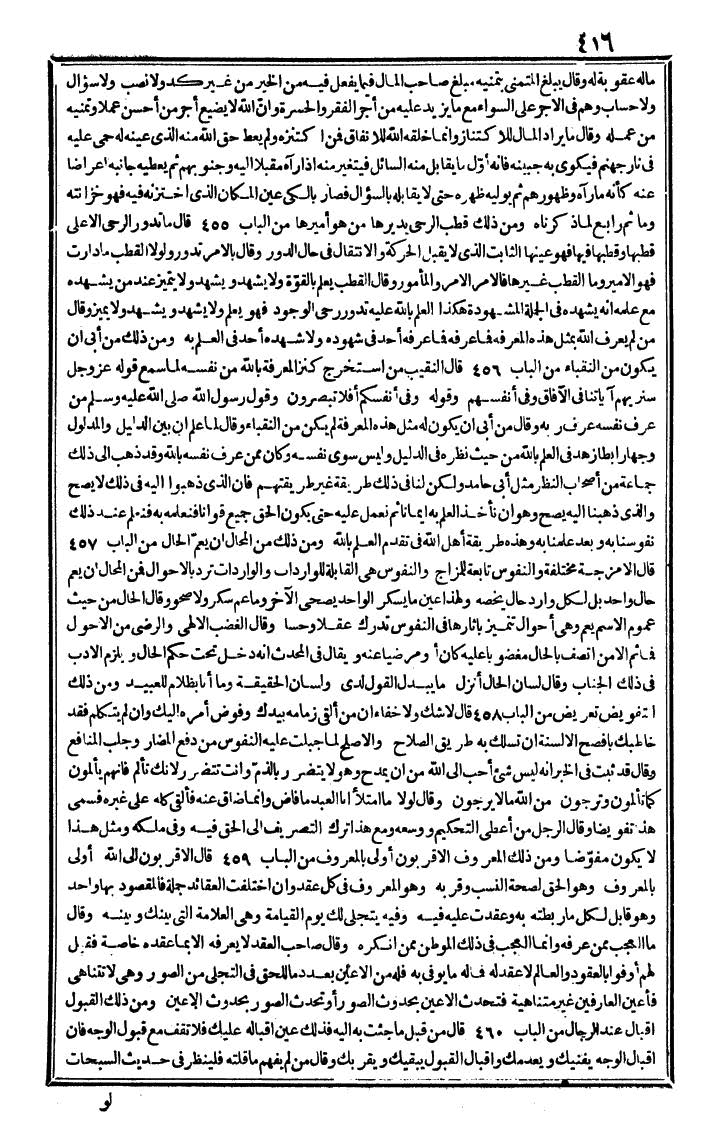 ٤١٦
ماله عقوبة له وقال يبلغ المتمنى بتمنيه مبلغ صاحب المال فيما يفعل فيه من الخير من غير كد ولا نصب ولا سؤال
ولا حساب وهم فى الاجر على السواء مع ما يزيد عليه من أجر الفقر والحسرة وانّ الله لا يضيع أجر من أحسن عملا وتمنيه
من عمله وقال ما يراد المال للاكتناز وانما خلقه الله للانفاق فن اكتنزه ولم يعط حق الله منه الذى عينه له حمى عليه
فى نار جهنم فيكوى به جبينه فانه أوّل ما يقابل منه السائل فيتغير منه اذا رآه مقبلا اليه وجنوبهم ثم يعطيه جانبه اعراضا
عنه كأنه ما رآه وظهورهم ثم يوليه ظهره حتى لا يقابله بالسؤال فصار بالكى عين المكان الذى اختزنه فيه فهو خزانته
وما ثم رابع لماذ كرناه ومن ذلك قطب الرحى يديرها من هو أميرها من الباب ٤٥٥ قال ما تدور الرحى الا على
قطبها وقطبها فيها فهو عينها الثابت الذى لا يقبل الحركة والانتقال فى حال الدور وقال بالامر تدور ولولا القطب ما دارت
فهو الامير وما القطب غيرها فالامر الامر والمأمور وقال القطب يعلم بالقوّة ولا يشهد ويشهد ولا يتميز عند من يشهده
مع علمه انه يشهده فى الجملة المشهودة هكذا العلم بالله عليه تدور رحى الوجود فهو يعلم ولا يشهد ويشهد ولا يميز وقال
من لم يعرف الله بمثل هذه المعرفة فما عرفه فما عرفه أحد فى شهوده ولا شهده أحد فى العلم به ومن ذلك من أبى ان
يكون من النقباء من الباب ٤٥٦ قال النقيب من استخرج كنز المعرفة بالله من نفسه لما سمع قوله عز وجل
سنريهم آياتنا فى الآفاق وفى أنفسهم وقوله وفى أنفسكم أفلا تبصرون وقول رسول الله صلى الله عليه وسلم من
عرف نفسه عرف ربه وقال من أبى ان يكون له مثل هذه المعرفة لم يكن من النقباء وقال لما علم ان بين الدليل والمدلول
وجها رابطا زهد فى العلم بالله من حيث نظره فى الدليل وليس سوى نفسه وكان ممن عرف نفسه بالله وقد ذهب الى ذلك
جماعة من أصحاب النظر مثل أبى حامد ولكن لنا فى ذلك طريقة غير طريقتهم فان الذى ذهبوا اليه فى ذلك لا يصح
والذى ذهبنا اليه يصح وهو ان نأخذ العلم به ايمانا ثم نعمل عليه حتى يكون الحق جميع قوانا فنعلمه به فنعلم عند ذلك
نفوسنا به وبعد علمنا به وهذه طريقة أهل الله فى تقدم العلم بالله ومن ذلك من المحال ان يعمّ الحال من الباب ٤٥٧
قال الامزجة مختلفة والنفوس تابعة للمزاج والنفوس هى القابلة للواردات والواردات ترد بالاحوال فن المحال ان يعم
حال واحد بل لكل وارد حال يخصه ولهذا عين ما يسكر الواحد يصحى الآخر وما عم سكر ولا صحو وقال الحال من حيث
عموم الاسم يعم وهى أحوال تتميز بآثارها فى النفوس تدرك عقلا وحسا وقال الغضب الالهى والرضى من الاحول
فما ثم الامن اتصف بالحال مغضوبا عليه كان أو مرضيا عنه ويقال فى المحدث انه دخل تحت حكم الحال ويلزم الادب
فى ذلك الجناب وقال لسان الحال أنزل ما يبدل القول لدى ولسان الحقيقة وما أنا بظلام للعبيد ومن ذلك
التفويض تعريض من الباب ٤٥٨ قال لا شك ولا خفاء ان من ألقى زمامه بيدك وفوض أمره اليك وان لم يتكلم فقد
خاطبك بافصح الالسنة ان تسلك به طريق الصلاح والاصلح لما جبلت عليه النفوس من دفع المضار وجلب المنافع
وقال قد ثبت فى الخبر انه ليس شئ أحب الى الله من ان يمدح وهو لا يتضرر بالذم وانت تتضرر لانك تألم فانهم يألمون
كما تألمون وترجون من الله ما لا يرجون وقال لولا ما امتلأ اناء العبد ما فاض وانما ضاق عنه فألقى كله على غيره فسمى
هذا تفويضا وقال الرجل من أعطى التحكيم ووسعه ومع هذا ترك التصريف الى الحق فيه وفى ملكه ومثل هذا
لا يكون مفوّضا ومن ذلك المعروف الاقربون أولى بالمعروف من الباب ٤٥٩ قال الاقربون الى الله أولى
بالمعروف وهو الحق لصحة النسب وقربه وهو المعروف فى كل عقد وان اختلفت العقائد جملة فالمقصود بها واحد
وهو قابل لكل ما ربطته به وعقدت عليه فيه وفيه يتجلى لك يوم القيامة وهى العلامة التى بينك وبينه وقال
ما العجب ممن عرفه وانما العجب فى ذلك الموطن ممن انكره وقال صاحب العقد لا يعرفه الا بما عقده خاصة فقيل
لهم أوفوا بالعقود والعالم لا عقد له فما له ما يوفى به فله من الاعين بعدد ما للحق فى التجلى من الصور وهى لا تتناهى
فأعين العارفين غير متناهية فتحدث الاعين بحدوث الصور أو تحدث الصور بحدوث الاعين ومن ذلك القبول
اقبال عند الرجال من الباب ٤٦٠ قال من قبل ما جئت به اليه فذلك عين اقباله عليك فلا تقف مع قبول الوجه فان
اقبال الوجه يفنيك ويعدمك واقبال القبول يبقيك ويقربك وقال من لم يفهم ما قلته فلينظر فى حديث السبحات
لو